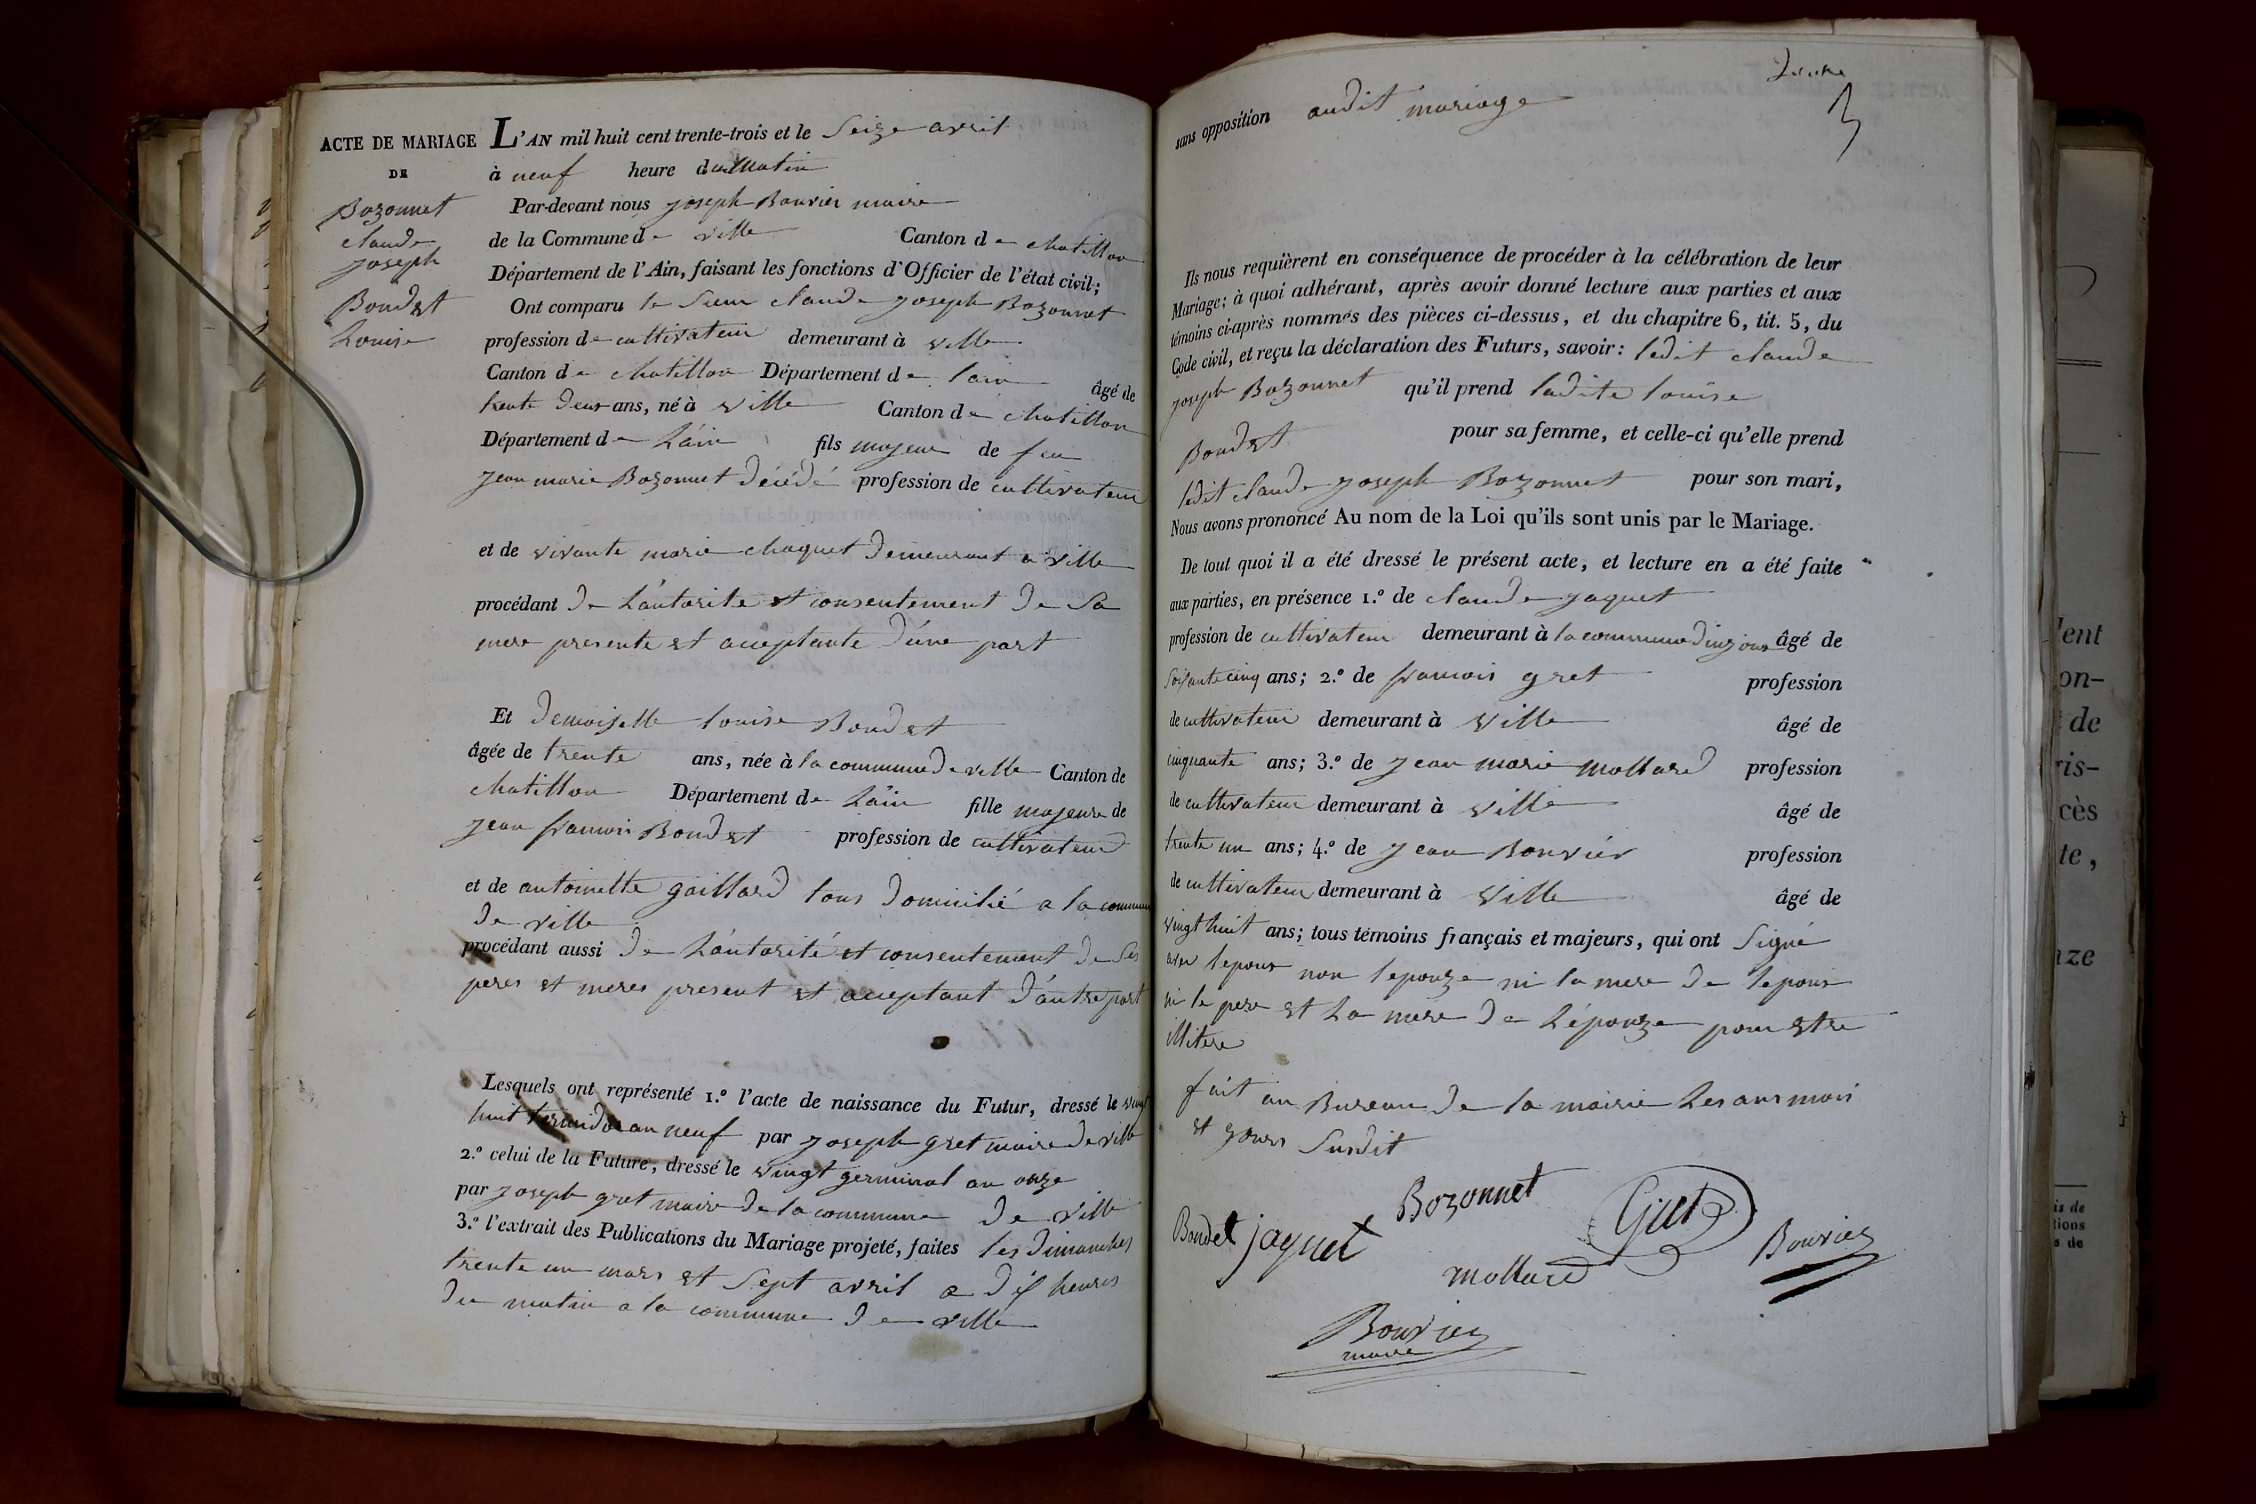 ACTE DE MARIAGE
DE
Bozonnet
claude
joseph
Boudet
Louise
L'AN mil huit cent trente-trois et le Seize avril
à neuf heure du Matin
Par-devant nous joseph Bouvier maire
de la Commune de ville Canton de chatillon
Département de l'Ain, faisant les fonctions d'Officier de l'état civil;
Ont comparu le Sieur claude joseph Bozonnet
profession de cultivateur demeurant à ville
Canton de chatillon Département de lain âgé de
trente deux ans, né à ville Canton de chatillon
Département de L'ain fils majeur de feu
jean marie Bozonnet décédé profession de cultivateur
et de vivante marie chaquet demeurant a ville
procédant de L'autorite et consentement de Sa
mere presente et acceptante d'une part
Et demoiselle louise Boudet
âgée de trente ans, née à la commune de ville Canton de
chatillon Département de L'ain fille majeure de
jean francois Boudet profession de cultivateur
et de antoinette gaillard tous domicilié a la commune
de ville
procédant aussi de L'autorité et consentement de Ses
peres et meres present et acceptant d'autre part
Lesquels ont représenté 1.º l'acte de naissance du Futur, dressé le vingt
huit an neuf par joseph gret maire de ville
2.º celui de la Future, dressé le vingt germinal an onze
par joseph gret maire de la commune de ville
3.º l'extrait des Publications du Mariage projeté, faites les dimanches
trente un mars et Sept avril a dix heures
du matin a la commune de ville
3
sans opposition audit mariage
Ils nous requièrent en conséquence de procéder à la célébration de leur
Mariage; à quoi adhérant, après avoir donné lecture aux parties et aux
témoins ci-après nommés des pièces ci-dessus, et du chapitre 6, tit. 5, du
Code civil, et reçu la déclaration des Futurs, savoir: ledit claude
joseph Bozonnet qu'il prend ladite louise
Boudet pour sa femme, et celle-ci qu'elle prend
ledit claude joseph Bozonnet pour son mari,
Nous avons prononcé Au nom de la Loi qu'ils sont unis par le Mariage.
De tout quoi il a été dressé le présent acte, et lecture en a été faite
aux parties, en présence 1.º de claude jaquet
profession de cultivateur demeurant à la commune âgé de
Soixante cinq ans; 2.º de francois gret profession
de cultivateur demeurant à ville âgé de
cinquante ans; 3.º de jean marie mollard profession
de cultivateur demeurant à ville âgé de
trente un ans; 4.º de jean Bouvier profession
de cultivateur demeurant à ville âgé de
vingt huit ans; tous témoins français et majeurs, qui ont Signé
avec lepoux non lepouze ni la mere de lepoux
ni le pere et La mere de L'épouze pour etre
illitere
fait au Bureau de la mairie Les ans mois
et jours Susdit
Bozonnet
Boudet jaquet
mollard
Bouvier
Bouvier
maire